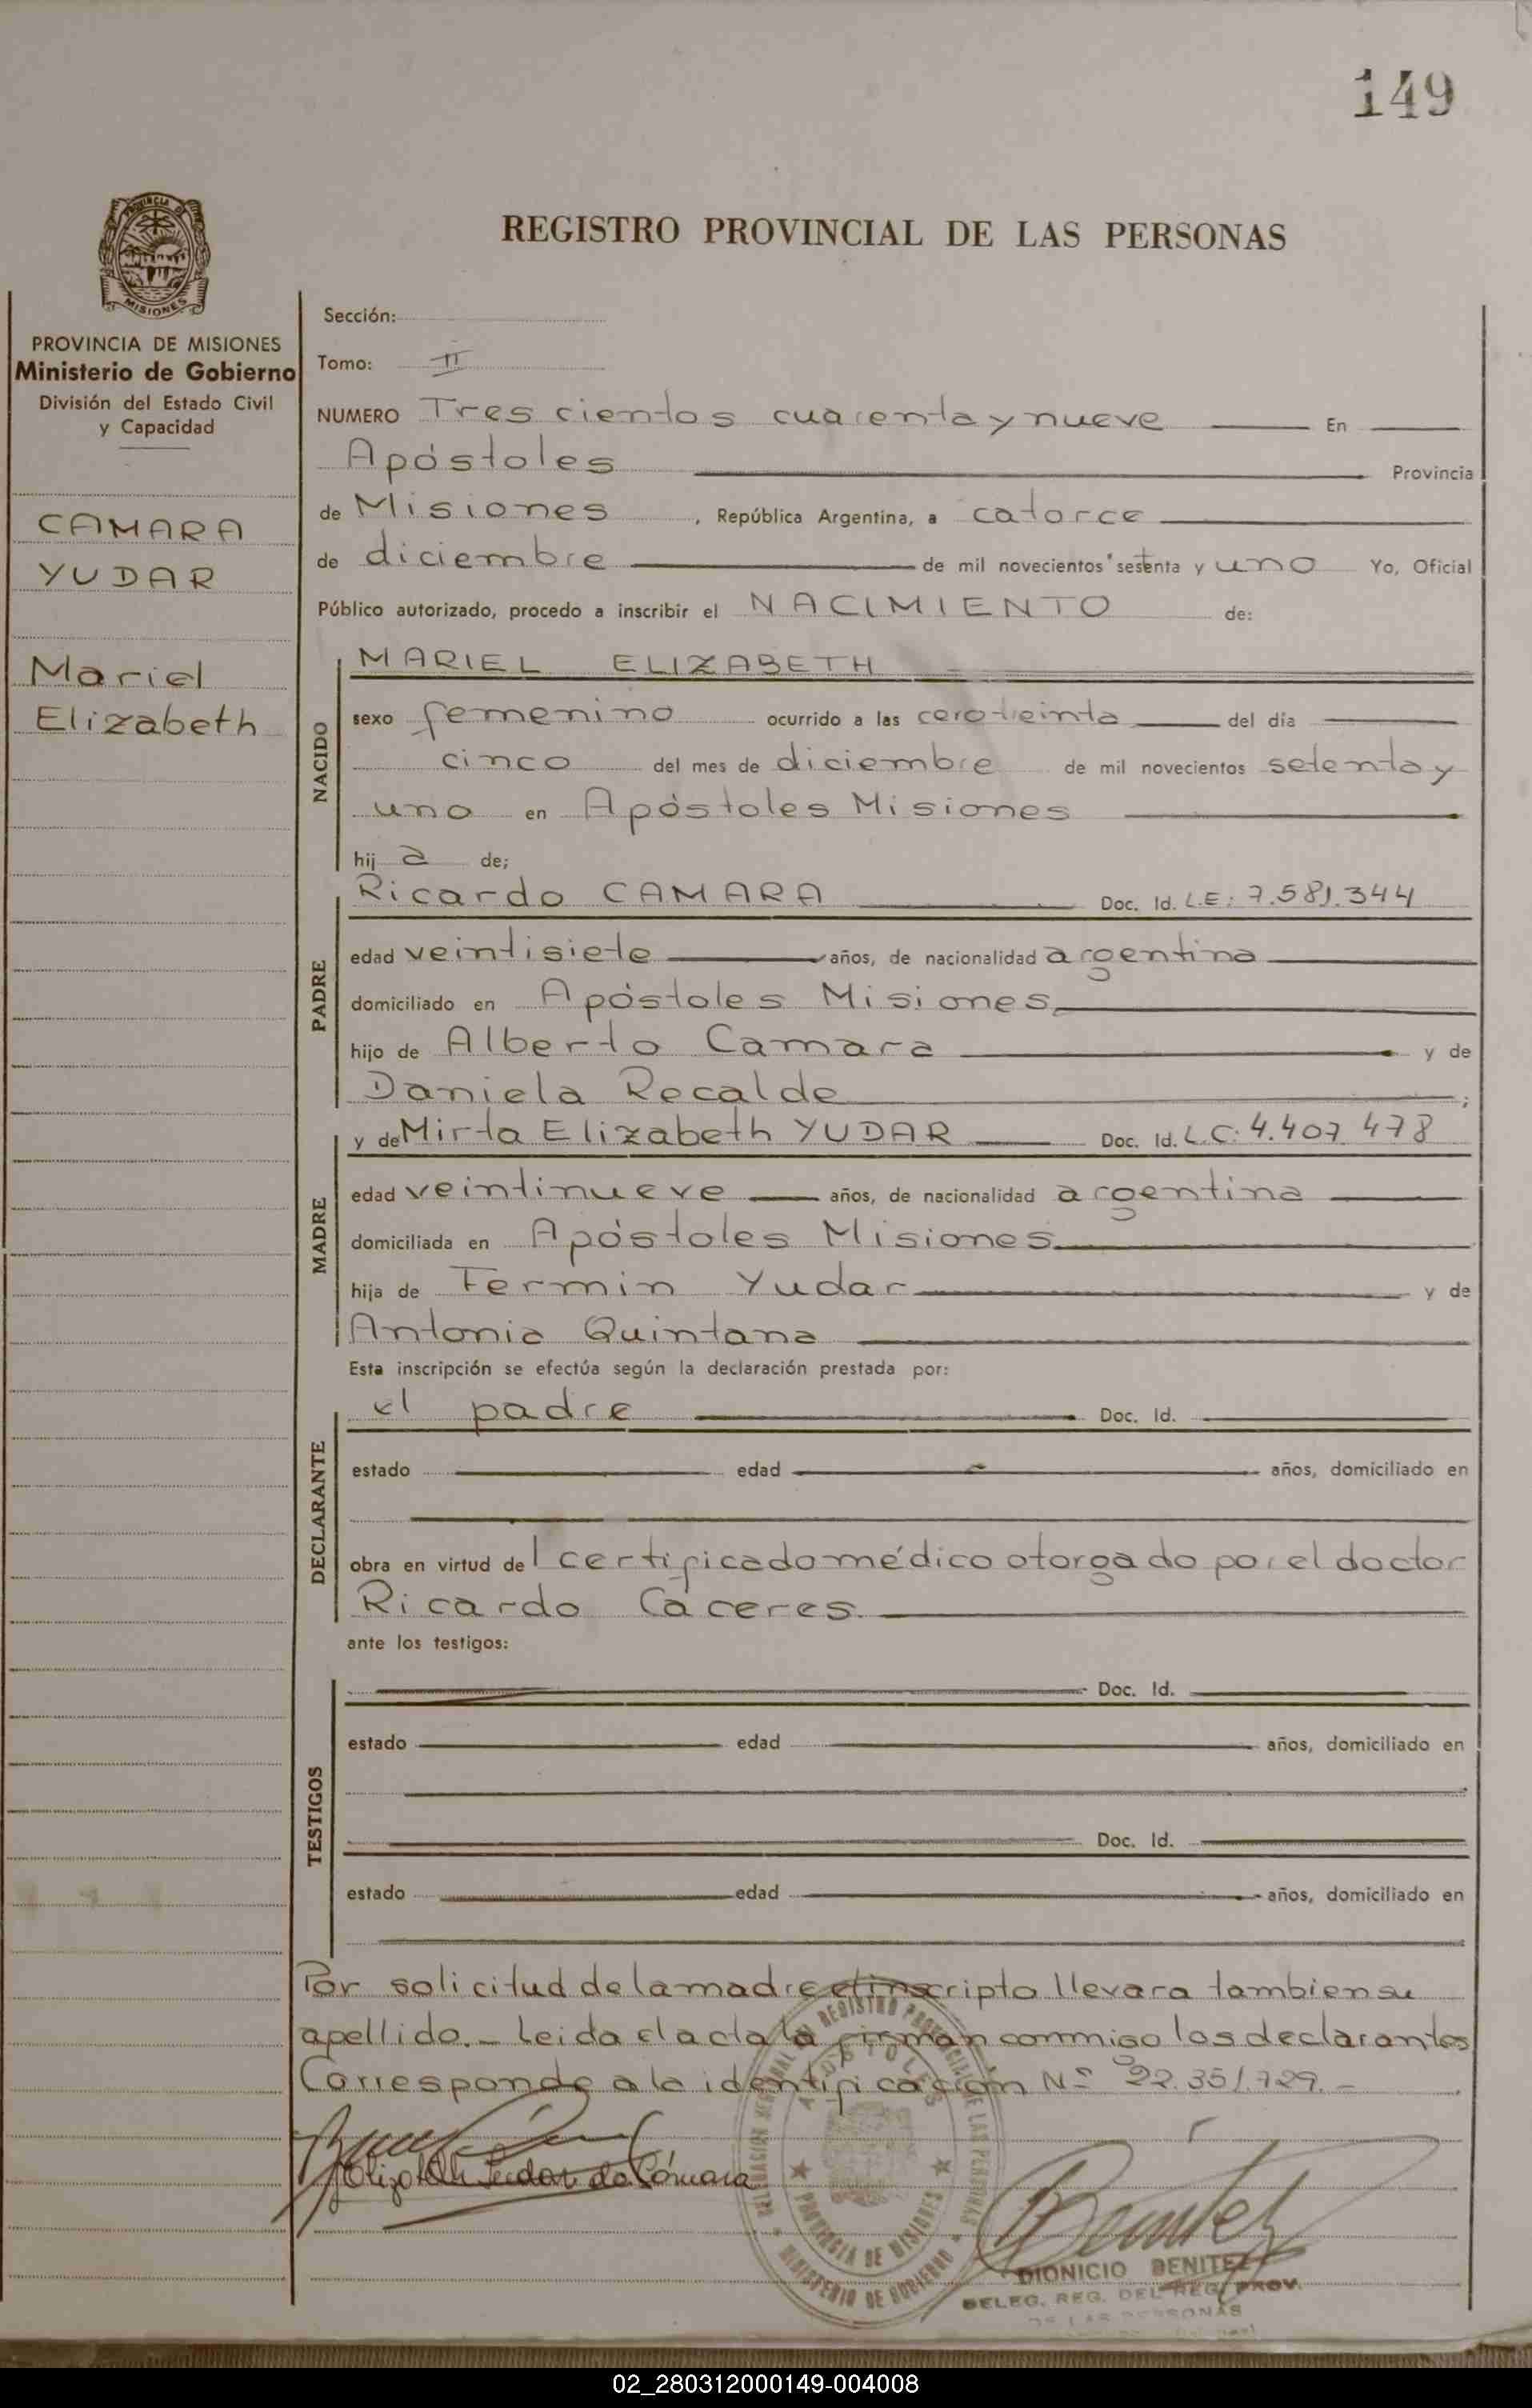 149
REGISTRO PROVINCIAL DE LAS PERSONAS
PROVINCIA DE MISIONES
Ministerio de Gobierno
División del Estado Civil
y Capacidad
CAMARA
YUDAR
Mariel
Elizabeth
Sección:
Tomo: II
NUMERO Tres cientos cuarenta y nueve En
Apóstoles Provincia
de Misiones, República Argentina, a catorce
de diciembre de mil novecientos setenta y uno Yo, Oficial
Público autorizado, procedo a inscribir el NACIMIENTO de:
NACIDO
MARIEL ELIZABETH
sexo femenino ocurrido a las cero treinta del día
cinco del mes de diciembre de mil novecientos setenta y
uno en Apóstoles Misiones
hija de;
PADRE
Ricardo CAMARA Doc. Id. L.E: 7.581.344
edad veintisiete años, de nacionalidad argentina
domiciliado en Apóstoles Misiones
hijo de Alberto Camara y de
Daniela Recalde ;
MADRE
y de Mirta Elizabeth YUDAR Doc. Id. L.C: 4.407.478
edad veintinueve años, de nacionalidad argentina
domiciliada en Apóstoles Misiones
hija de Fermin Yudar y de
Antonia Quintana
Esta inscripción se efectúa según la declaración prestada por:
DECLARANTE
el padre Doc. Id.
estado edad años, domiciliado en
obra en virtud del certificado médico otorgado por el doctor
Ricardo Cáceres.
ante los testigos:
TESTIGOS
Doc. Id.
estado edad años, domiciliado en
Doc. Id.
estado edad años, domiciliado en
Por solicitud de la madre el inscripto llevara tambien su
apellido.- Leida el acta la firman conmigo los declarantes
Corresponde a la identificación Nº 22.351.729.-
Elizabeth Yudar de Cámara
Benitez
DIONICIO BENITEZ
DELEG. REG. DEL REG. PROV.
DE LAS PERSONAS
APOSTOLES
PROVINCIA DE MISIONES
MINISTERIO DE GOBIERNO
02_280312000149-004008